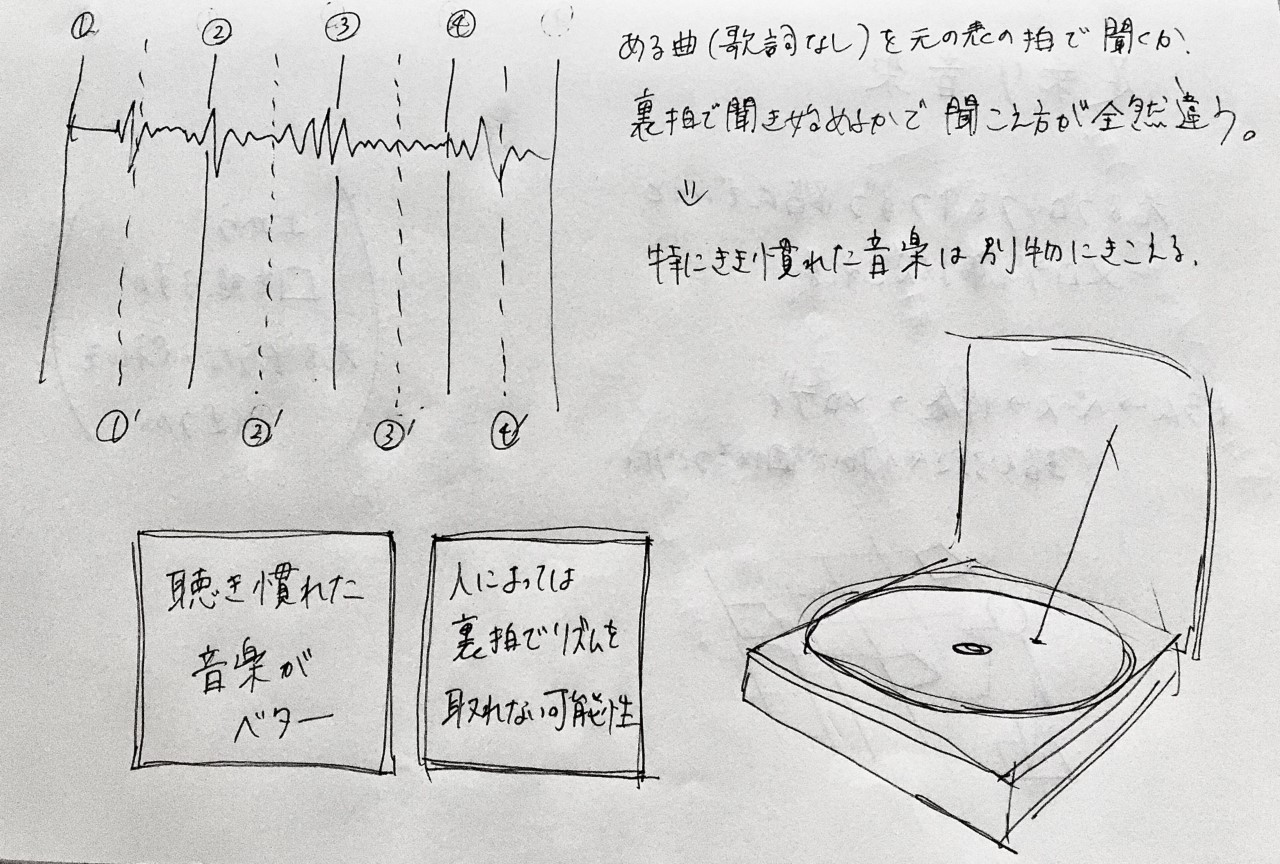 ① ② ③ ④
①' ②' ③' ④'
ある曲(歌詞なし)を元の表の拍で聞くか、
裏拍で聞き始めるかで聞こえ方が全然違う。
⇓
特にきき慣れた音楽は別物にきこえる。
聴き慣れた
音楽が
ベター
人によっては
裏拍でリズムを
取れない可能性